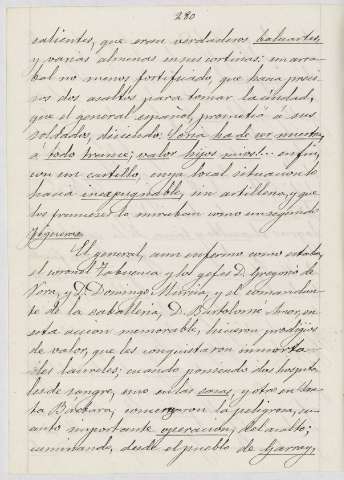 280
salientes, que eran verdaderos baluartes,
y varias almenas en sus cortinas: un arra-
bal no menos fortificado, que hacia preci-
sos dos asaltos para tomar la ciudad,
que el general español, prometió á sus
soldados, diciendo: Soria ha de ser nuestra,
á todo trance; valor hijos mios!... en fin,
con un castillo, cuya local situacion le
hacia inexpugnable, sin artilleria, y que
los franceses lo miraban como un segundo
Figueras.
El general, aun enfermo como estaba,
el coronel Tabuenca y los gefes D. Gregorio de
Vera, y D. Domingo Murcia, y el comandan-
te de la caballeria, D. Bartolomé Amor, en
esta accion memorable, hicieron prodigios
de valor, que les conquistaron inmorta-
les laureles; cuando poniendo dos hospita-
les de sangre, uno en las casas, y otro en San-
ta Bárbara, comenzaron la peligrosa, cu-
anto importante operacion, del asalto;
caminando, desde el pueblo de Garray,